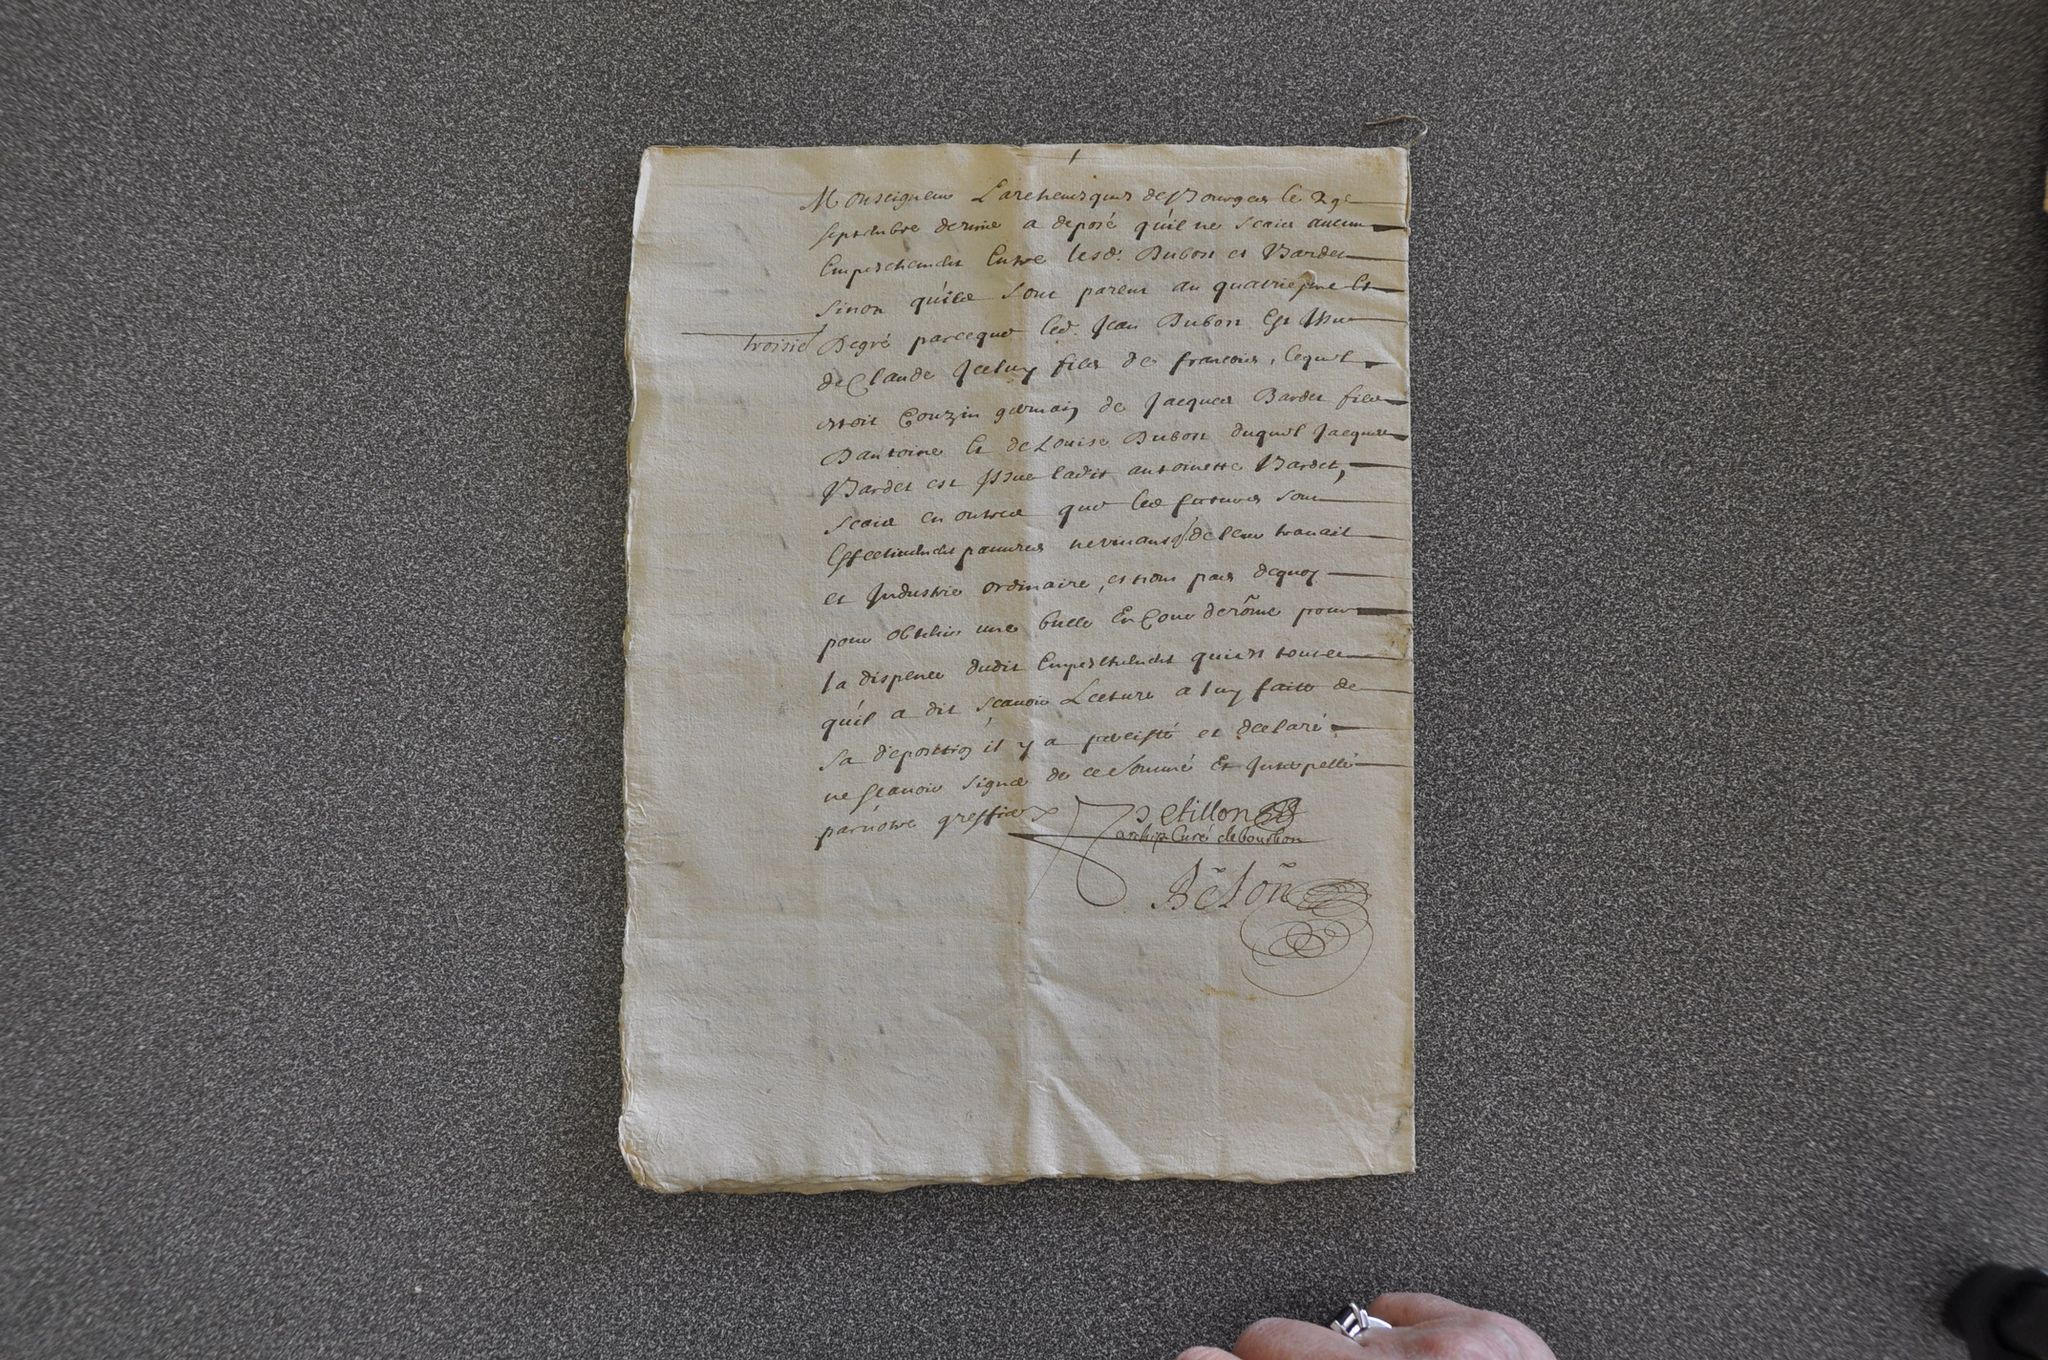 Monseigneur Larchevesque de Bourges le 29e
septembre dernie a deposé qu'il ne scait aucun
Empeschement Entre lesd. Dubost et Bardet
sinon qu'ils sont parent au quatriesme et
troisie Degré parceque led. Jean Dubost Est Issu
de Claude Iceluy fils de francois, lequel
estoit Couzin germain de Jacques Bardet fils
Dantoine Et de Louise Dubost duquel Jacques
Bardet est Issue ladit antoinette Bardet,
scait en outre que led futures sont
Effectivement pauvres ne vivans q de leur travail
et Industrie ordinaire, et nont pas dequoy
pour obtenir une bulle En Cour de rôme pour
la dispence dudit Empeschement qui est tout ce
qu'il a dit scavoir Lecture a luy faite de
sa depositio il y a persisté et declaré
ne scavoir signer de ce Sommé Et Interpellé
par notre greffier
Petillon
archip. Curé de bourbon